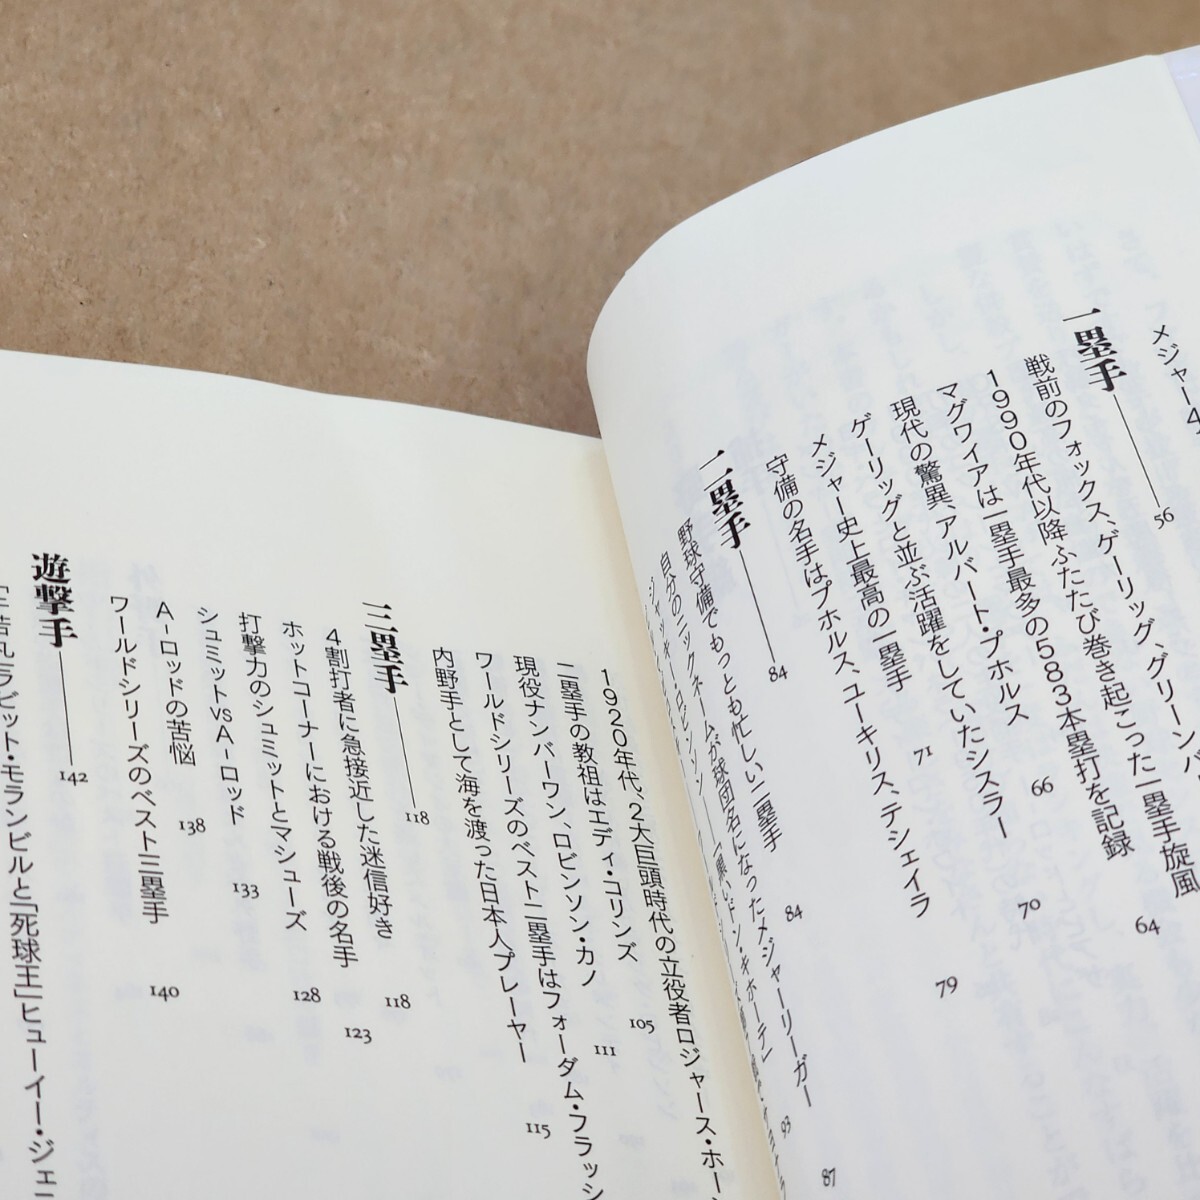 メジャー4
一塁手 56
戦前のフォックス、ゲーリッグ、グリーンバ
1990年代以降ふたたび巻き起こった一塁手旋風 64
マグワイアは一塁手最多の583本塁打を記録
現代の驚異、アルバート・プホルス 66
ゲーリッグと並ぶ活躍をしていたシスラー 70
メジャー史上最高の一塁手 71
守備の名手はプホルス、ユーキリス、テシェイラ 79
二塁手 84
野球守備でもっとも忙しい二塁手 84
自分のニックネームが球団名になったメジャーリーガー 87
ジャッキー・ロビンソン 93
1920年代、2大巨頭時代の立役者ロジャース・ホー
二塁手の教祖はエディ・コリンズ 105
現役ナンバーワン、ロビンソン・カノ 111
ワールドシリーズのベスト二塁手はフォーダム・フラッシ
内野手として海を渡った日本人プレーヤー 115
三塁手 118
4割打者に急接近した迷信好き 118
ホットコーナーにおける戦後の名手 123
打撃力のシュミットとマシューズ 128
シュミットVSA-ロッド 133
A-ロッドの苦悩 138
ワールドシリーズのベスト三塁手 140
遊撃手 142
ラビット・モランビルと「死球王」ヒューイー・ジェニ